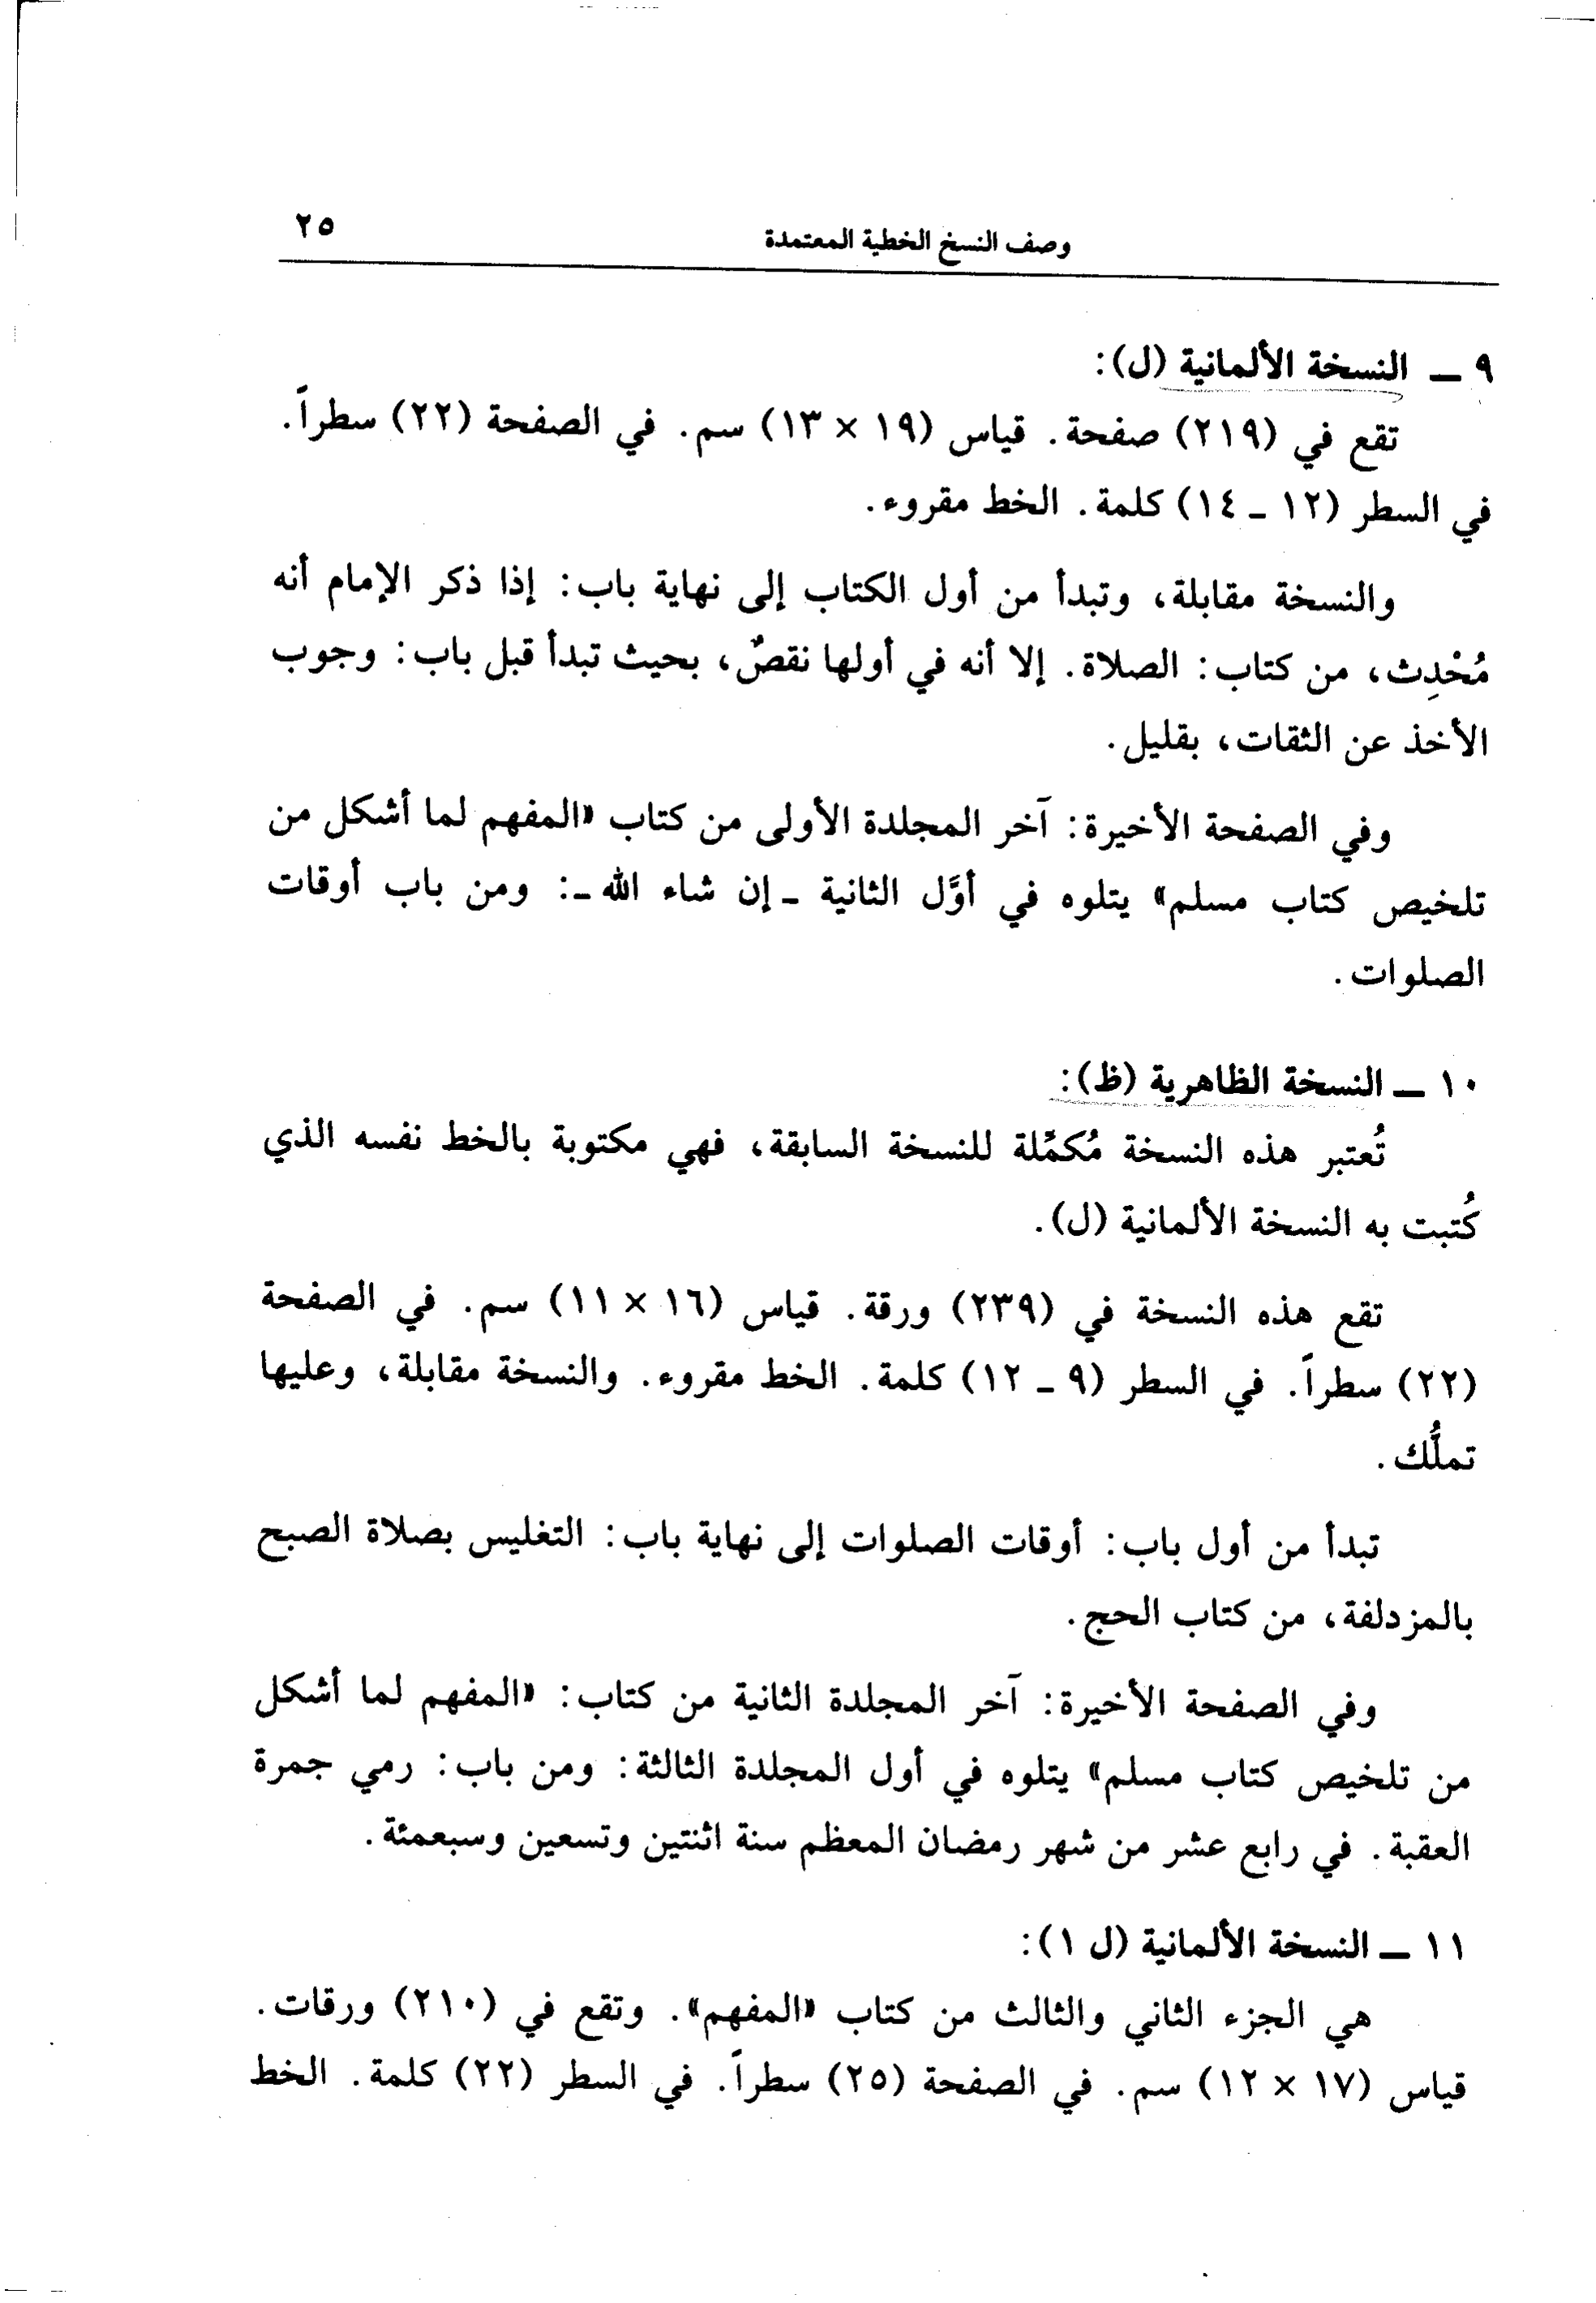 وصف النسخ الخطية المعتمدة ٢٥
٩ ـ النسخة الألمانية (ل):
تقع في (٢١٩) صفحة. قياس (١٩ × ١٣) سم. في الصفحة (٢٢) سطراً.
في السطر (١٢ ـ ١٤) كلمة. الخط مقروء.
والنسخة مقابلة، وتبدأ من أول الكتاب إلى نهاية باب: إذا ذكر الإمام أنه
مُحْدِث، من كتاب: الصلاة. إلا أنه في أولها نقصٌ، بحيث تبدأ قبل باب: وجوب
الأخذ عن الثقات، بقليل.
وفي الصفحة الأخيرة: آخر المجلدة الأولى من كتاب «المفهم لما أشكل من
تلخيص كتاب مسلم» يتلوه في أوَّل الثانية ـ إن شاء الله ـ: ومن باب أوقات
الصلوات.
١٠ ـ النسخة الظاهرية (ظ):
تُعتبر هذه النسخة مُكمِّلة للنسخة السابقة، فهي مكتوبة بالخط نفسه الذي
كُتبت به النسخة الألمانية (ل).
تقع هذه النسخة في (٢٣٩) ورقة. قياس (١٦ × ١١) سم. في الصفحة
(٢٢) سطراً. في السطر (٩ ـ ١٢) كلمة. الخط مقروء. والنسخة مقابلة، وعليها
تملُّك.
تبدأ من أول باب: أوقات الصلوات إلى نهاية باب: التغليس بصلاة الصبح
بالمزدلفة، من كتاب الحج.
وفي الصفحة الأخيرة: آخر المجلدة الثانية من كتاب: «المفهم لما أشكل
من تلخيص كتاب مسلم» يتلوه في أول المجلدة الثالثة: ومن باب: رمي جمرة
العقبة. في رابع عشر من شهر رمضان المعظم سنة اثنتين وتسعين وسبعمئة.
١١ ـ النسخة الألمانية (ل ١):
هي الجزء الثاني والثالث من كتاب «المفهم». وتقع في (٢١٠) ورقات.
قياس (١٧ × ١٢) سم. في الصفحة (٢٥) سطراً. في السطر (٢٢) كلمة. الخط